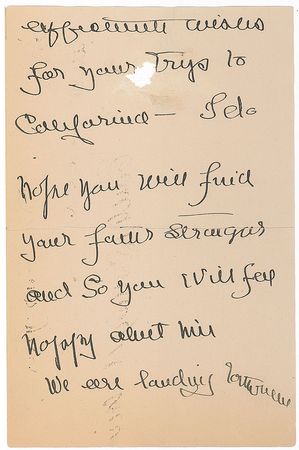 wishes
for your Tryp to
California — I do
hope you will find
your father stronger
and So you will feel
happy about him
We are landing